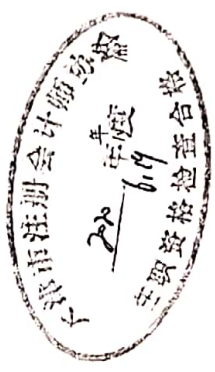 大连市注册会计师协会
2020 年度
6.19
任职资格检查合格